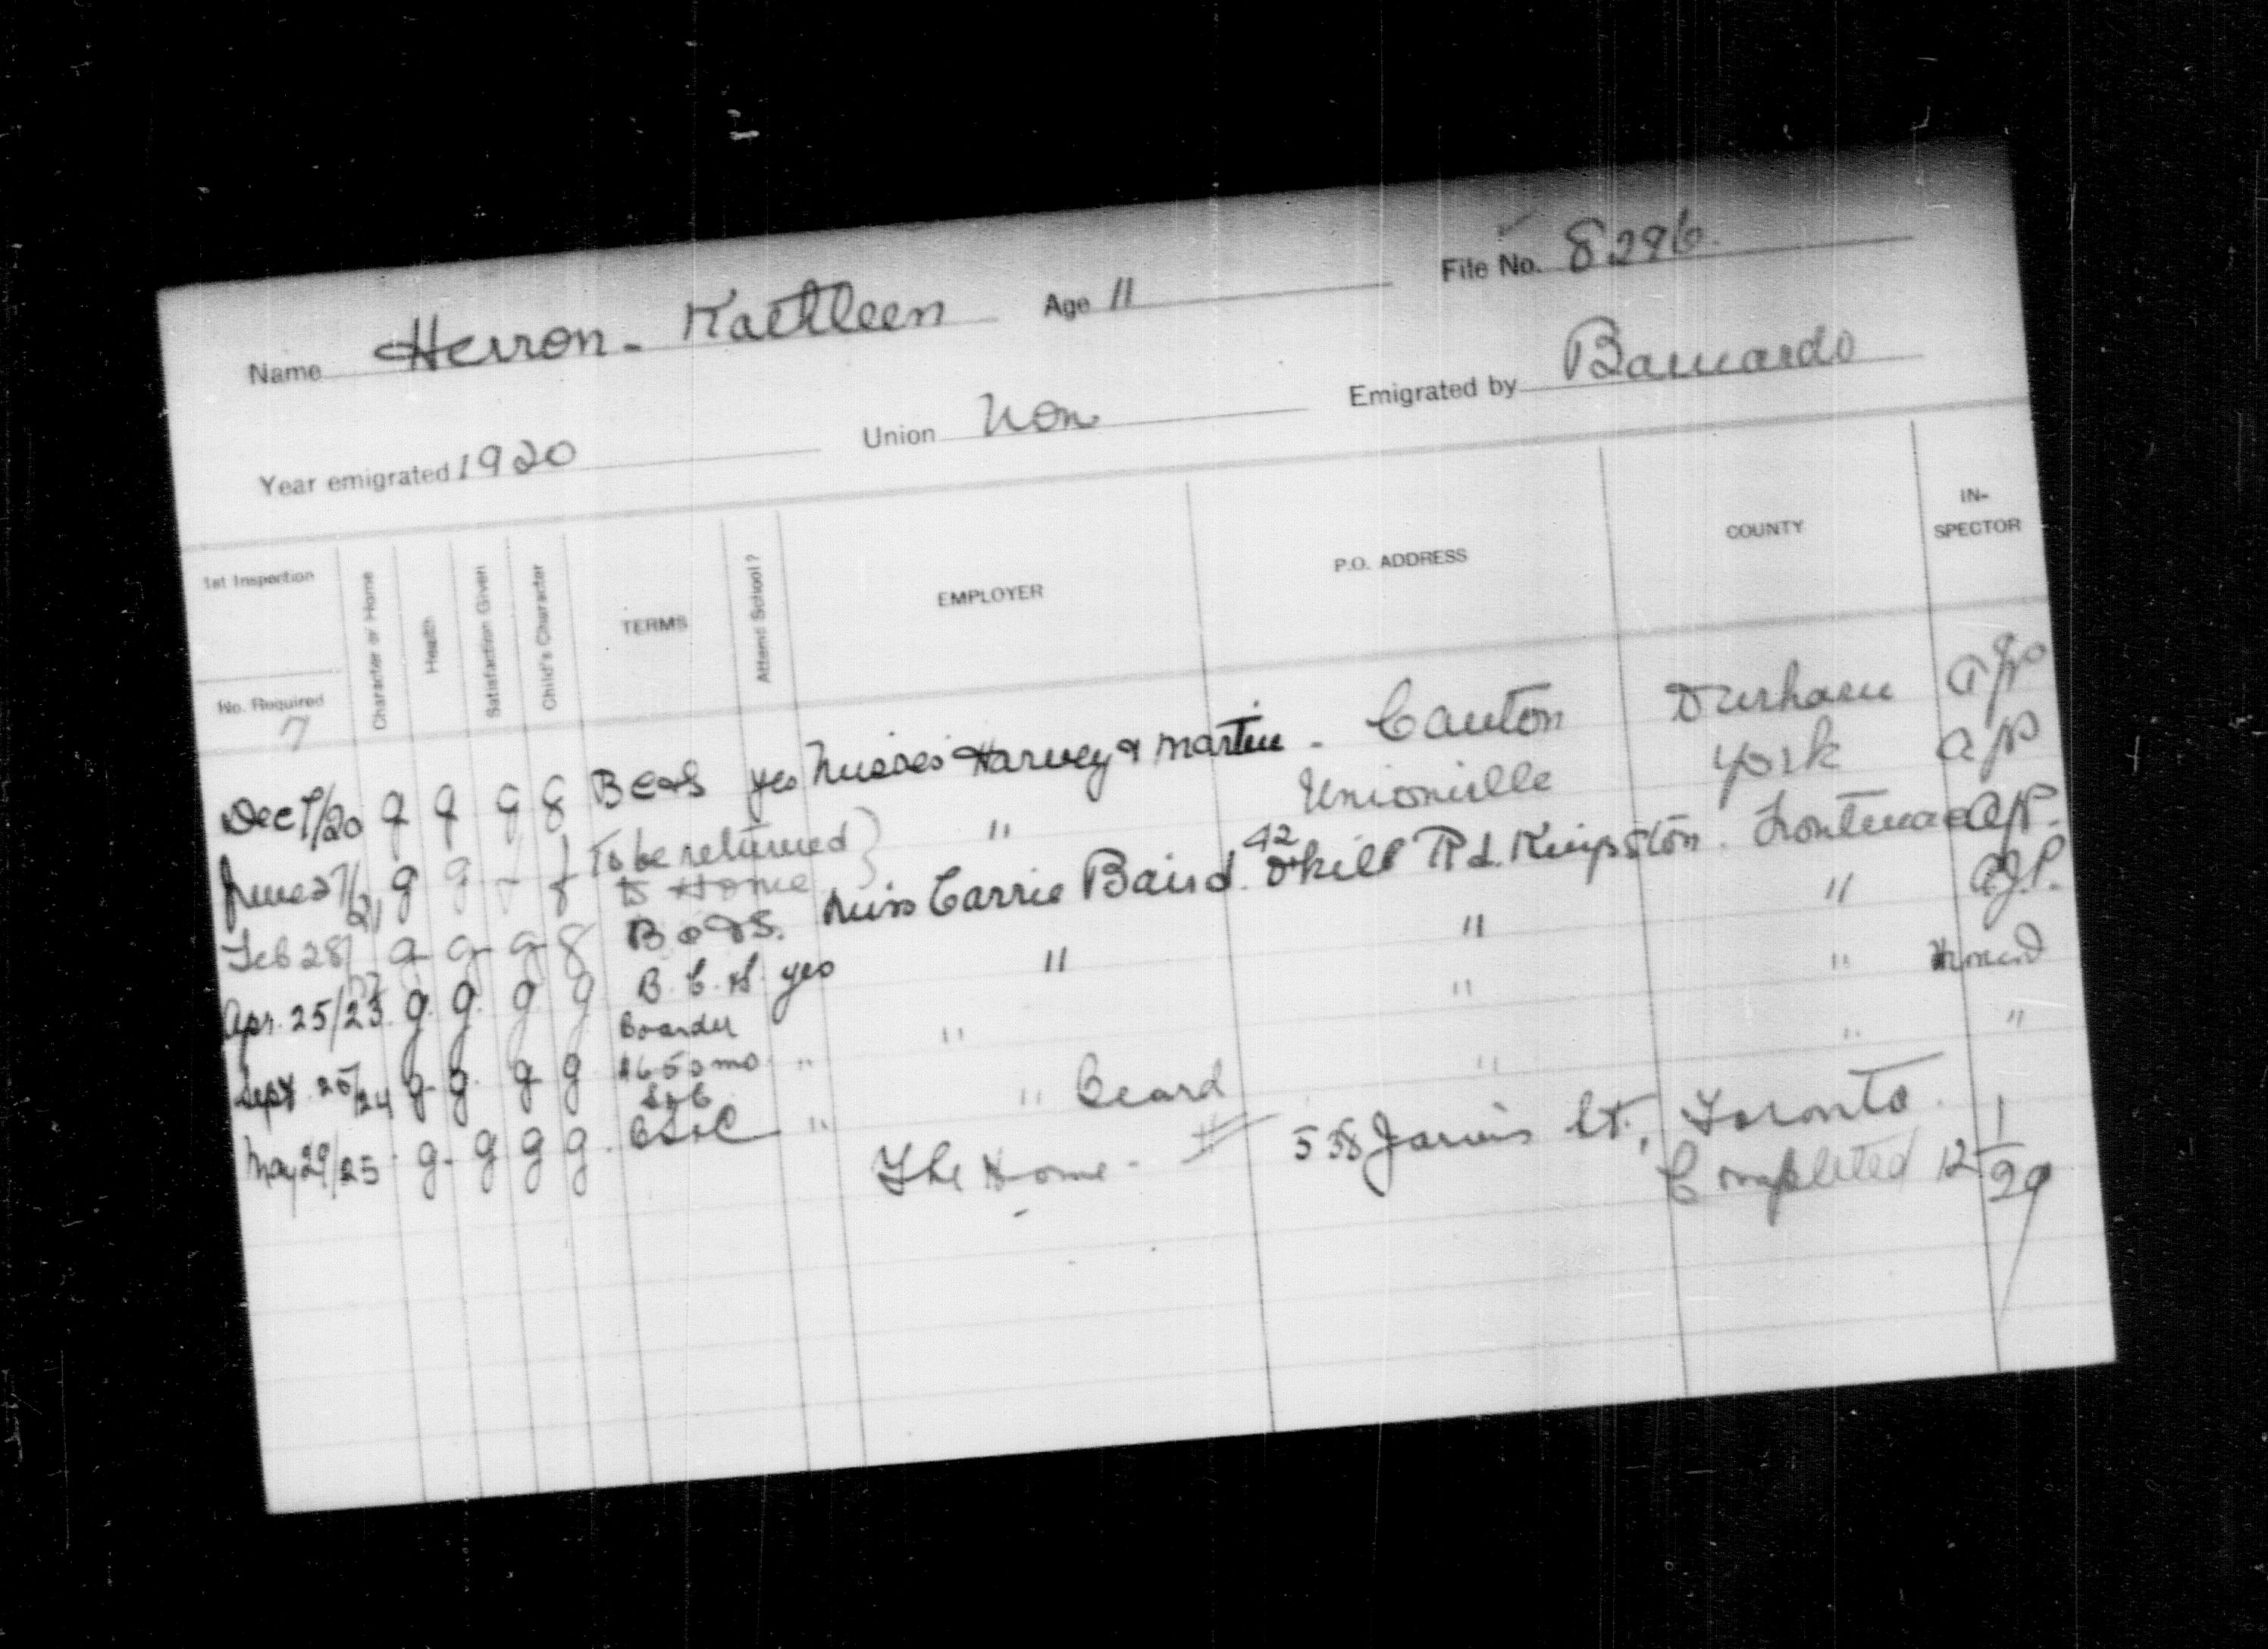 Name Herron - Kathleen Age 11 File No. 8296
Year emigrated 1920 Union Non Emigrated by Barnardo
1st Inspection
No. Required
7
Character of Home
Health
Satisfaction Given
Child's Character
TERMS
Attend School?
EMPLOYER
P.O. ADDRESS
COUNTY
IN-
SPECTOR
Dec 7/20 g g g g B C & S yes Misses Harvey & Martin - Canton Durham A.J.P.
June 27/21 g g - f To be returned to Home } " Unionville York A.J.P.
Feb 28/ g g g g B C & S. Miss Carrie Baird. 42 Okill Rd. Kingston. Frontenac A.J.P.
Apr. 25/23 g. g. g g B. C. S. yes " " " A.J.P.
Boarder
Sept 25/24 g. g. g g $6.50 mo. " " " "
S & C
May 29/25. g. g g g. " " Beard " " "
The Home - 538 Jarvis St., Toronto.
Completed 12 1/29